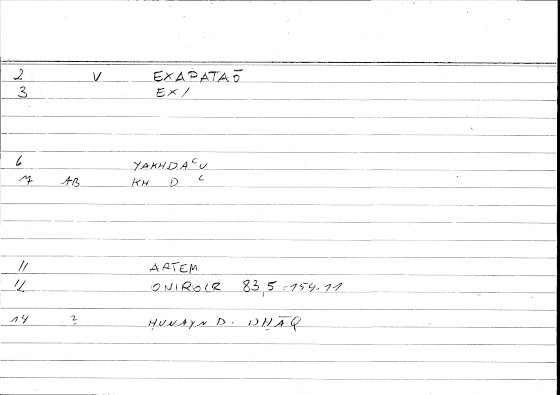 2 V EXAPATAŌ
3 EX/
6 YAKHDAᶜU
7 AB KH D ᶜ
11 ARTEM
12 ONIROCR 83,5 = 154.11
14 ? ḤUNAYN B. ISḤĀQ